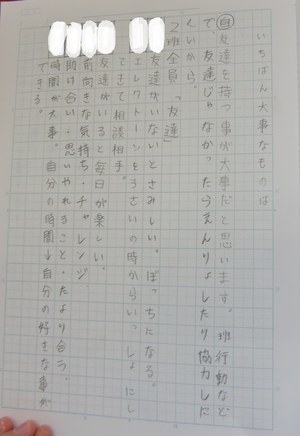 いちばん大事なものは
自友達を持つ事が大事だと思います。班行動など
で、友達じゃなかったらえんりょしたり協力しに
くいから。
2班全員「友達」
友達がいないとさみしい。ぼっちになる。
エレクトーンを3さいの時からいっしょにし
てきて相談相手。
友達がいると毎日が楽しい。
前向きな気持ち・チャレンジ
助け合い・思いやれること・たより合う。
時間が大事。自分の時間↓自分の好きな事が
できる。